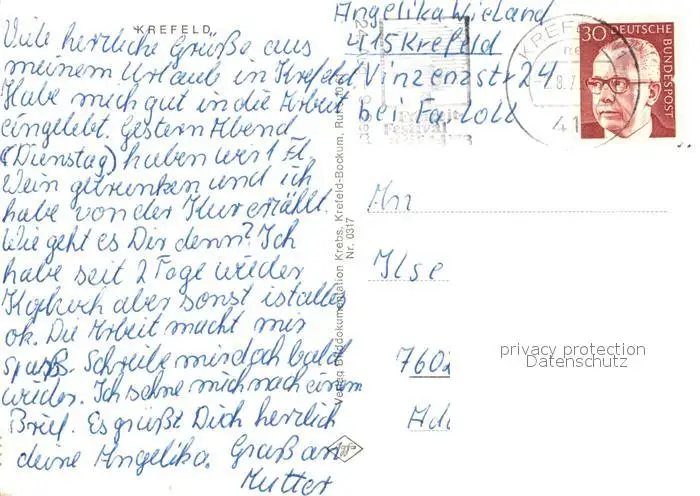 "KREFELD"
Viele herzliche Grüße aus
meinem Urlaub in Krefeld.
Habe mich gut in die Arbeit
eingelebt. Gestern Abend
(Dienstag) haben wir 1 Fl.
Wein getrunken und ich
habe von der Kur erzählt.
Wie geht es Dir denn? Ich
habe seit 2 Tage wieder
Kopfweh aber sonst ist alles
ok. Die Arbeit macht mir
spaß. Schreibe mir doch bald
wieder. Ich sehne mich nach einem
Brief. Es grüßt Dich herzlich
deine Angelika. Gruß an
Mutter
Angelika Wieland
415 Krefeld
Vinzenzstr 24
bei
Verlag Bilddokumentation Krebs, Krefeld-Bockum, Ruf
Nr. 0317
Agfa
Festival
KREFELD
41
30 DEUTSCHE
BUNDESPOST
An
Ilse
7602
privacy protection
Datenschutz